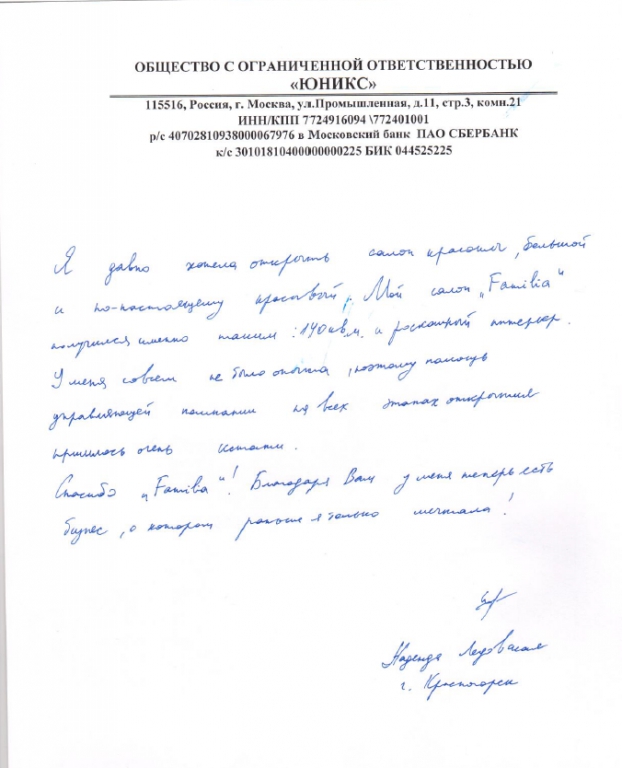 ОБЩЕСТВО С ОГРАНИЧЕННОЙ ОТВЕТСТВЕННОСТЬЮ
«ЮНИКС»
115516, Россия, г. Москва, ул.Промышленная, д.11, стр.3, комн.21
ИНН/КПП 7724916094 \772401001
р/с 40702810938000067976 в Московский банк ПАО СБЕРБАНК
к/с 30101810400000000225 БИК 044525225
Я давно хотела открыть салон красоты, большой
и по-настоящему красивый. Мой салон „Familia“
получился именно таким : 140 кв.м. и роскошный интерьер.
У меня совсем не было опыта, поэтому помощь
управляющей компании на всех этапах открытия
пришлась очень кстати.
Спасибо „Familia“! Благодаря Вам у меня теперь есть
бизнес, о котором раньше я только мечтала!
Надежда
г. Красногорск